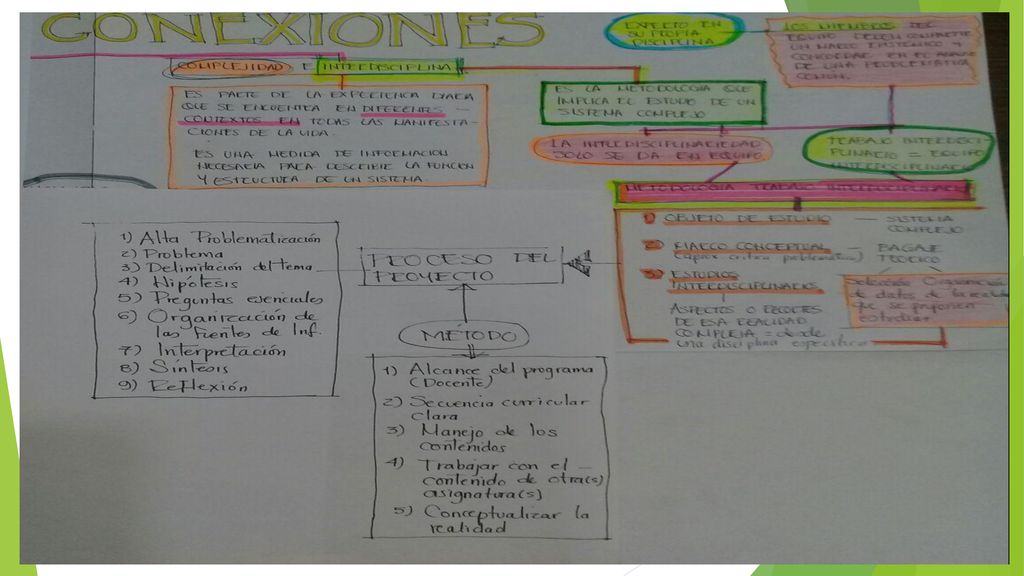 CONEXIONES
EXPERTO EN
SU PROPIA
DISCIPLINA
LOS MIEMBROS DEL
EQUIPO DEBEN COMPARTIR
UN MARCO EPISTÉMICO Y
CONCORDAR EN EL
DE UNA PROBLEMÁTICA
COMÚN.
COMPLEJIDAD E INTERDISCIPLINA
ES PARTE DE LA EXPERIENCIA DIARIA
QUE SE ENCUENTRA EN DIFERENTES
CONTEXTOS EN TODAS LAS MANIFESTA-
CIONES DE LA VIDA.
ES UNA MEDIDA DE INFORMACION
NECESARIA PARA DESCRIBIR LA FUNCION
Y ESTRUCTURA DE UN SISTEMA.
ES LA METODOLOGIA QUE
IMPLICA EL ESTUDIO DE UN
SISTEMA COMPLEJO
LA INTERDISCIPLINARIEDAD
SOLO SE DA EN EQUIPO
TRABAJO INTERDISCI-
PLINARIO = EQUIPO
INTERDISCIPLINARIO
METODOLOGIA TRABAJO INTERDISCIPLINARIO
1) OBJETO DE ESTUDIO — SISTEMA
COMPLEJO
2) MARCO CONCEPTUAL — BAGAJE
(aprox critica problemática) TEORICO
3) ESTUDIOS
INTERDISCIPLINARIOS
Selección Organización
de datos de la realidad
que se proponen
estudiar
ASPECTOS O RECORTES
DE ESA REALIDAD
COMPLEJA = desde
una disciplina especifica
1) Alta Problematización
2) Problema
3) Delimitación del tema
4) Hipótesis
5) Preguntas esenciales
6) Organización de
las fuentes de Inf.
7) Interpretación
8) Síntesis
9) Reflexión
PROCESO DEL
PROYECTO
MÉTODO
1) Alcance del programa
(Docente)
2) Secuencia curricular
clara
3) Manejo de los
contenidos
4) Trabajar con el
contenido de otra(s)
asignatura(s)
5) Conceptualizar la
realidad